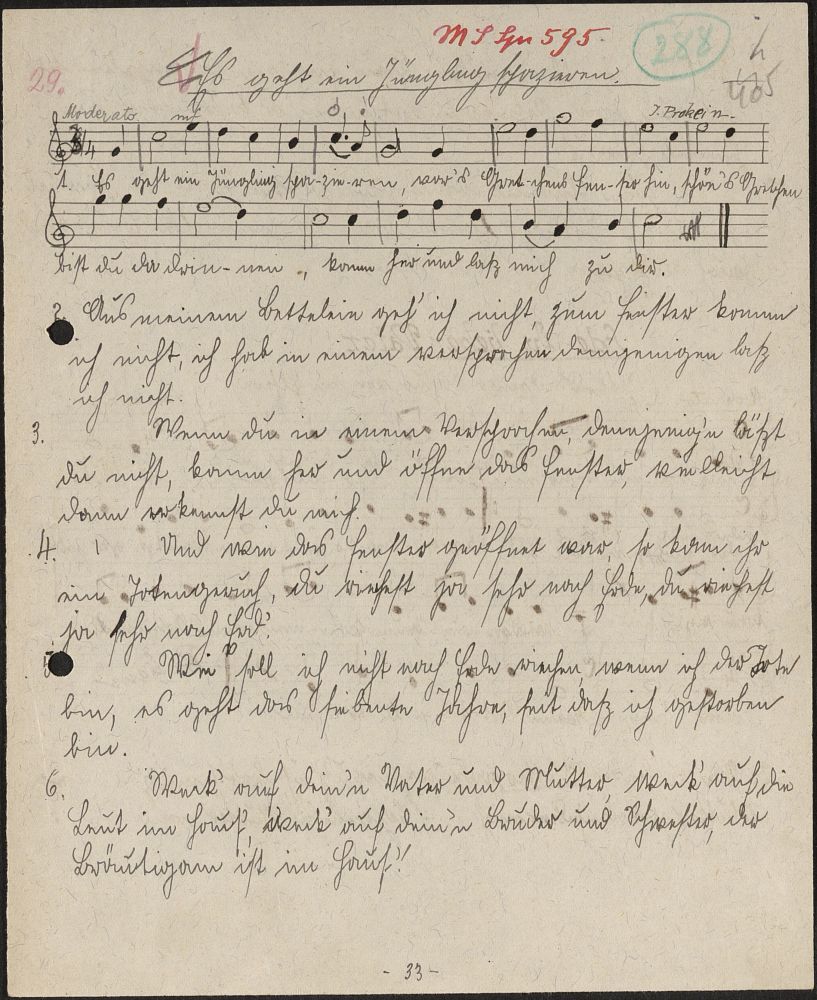 MS Spr 595.
288
29.
Es geht ein Jüngling spazieren.
405
Moderato
mf
J. Prokein.
3/4
1. Es geht ein Jüngling spa-zie-ren, vor's Gret-chens Fen-ster hin, schön's Gretchen
bist du da drin-nen, komm her und laß mich zu dir.
2. Aus meinem Bettelein geh' ich nicht, zum Fenster komm
ich nicht, ich hab in einem versprochen demjenigen laß
ich nicht.
3. Wenn du in einem Versprochen, demjenig'n läßt
du nicht, komm her und öffne das Fenster, vielleicht
dann erkennst du mich.
4. Und wie das Fenster geöffnet war, so kam ihr
ein Totengeruch, du riechest ja sehr nach Erde, du riechest
ja sehr nach Erd'.
5. Wie soll ich nicht nach Erde riechen, wenn ich der Tote
bin, es geht das siebente Jahre, seit daß ich gestorben
bin.
6. Weck' auf dein'n Vater und Mutter, weck' auf die
Leut im Haus', weck' auf dein'n Bruder und Schwester, der
Bräutigam ist im Haus'!
- 33 -